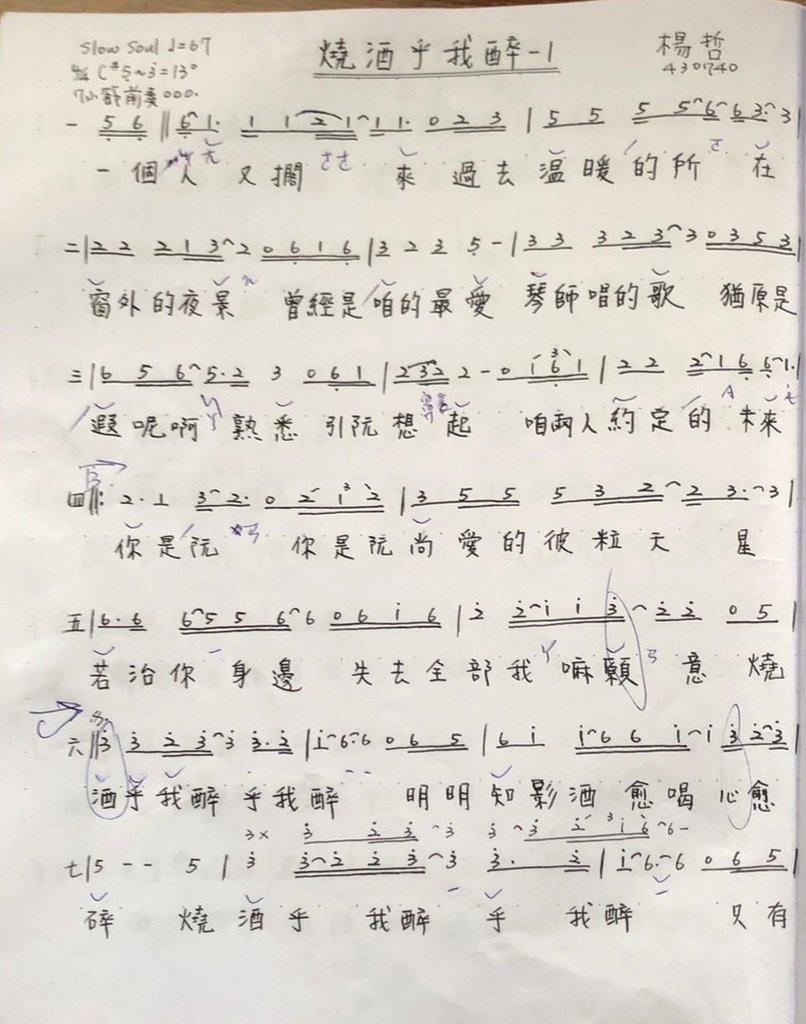 Slow Soul ♩=67
燒酒乎我醉-1
楊哲
4/4 C# 5~3=13°
430740
7小節前奏000.
一 5 6 ‖ 6 1· 1 1 2 1 1 1· 0 2 3 | 5 5 5 5 6 6 3· 3 |
一個人 又擱 來 過去溫暖的所 在
二 | 2 2 2 1 3 2 0 6 1 6 | 3 2 3 5 - | 3 3 3 2 3 3 0 3 5 3 |
窗外的夜景 曾經是咱的最愛 琴師唱的歌 猶原是
三 | 6 5 6 5·2 3 0 6 1 | 2 3 2 2 - 0 1 6 1 | 2 2 2 1 6 6 1· |
遐呢啊 熟悉 引阮想起 咱兩人約定的未來
四 ‖: 2· 1 3 2· 0 2 1 2 | 3 5 5 5 3 2 2 3· 3 |
你是阮 你是阮尚愛的彼粒天 星
五 | 6· 6 6 5 5 6 6 0 6 i 6 | 2 2 i i 3 2 2 0 5 |
若治你身邊 失去全部我嘛願 意 燒
六 ‖ 3 3 2 3 3 3·2 | i 6·6 0 6 5 | 6 i i 6 6 i i 3 2 3 |
酒乎我醉 乎我醉 明明知影酒愈喝心愈
3x 3 2 3 3 3 3 2 3 i 6 6 -
七 | 5 - - 5 | 3 3 2 2 3 3 3· 2 | i 6· 6 0 6 5 |
碎 燒酒乎 我醉 乎 我醉 只有